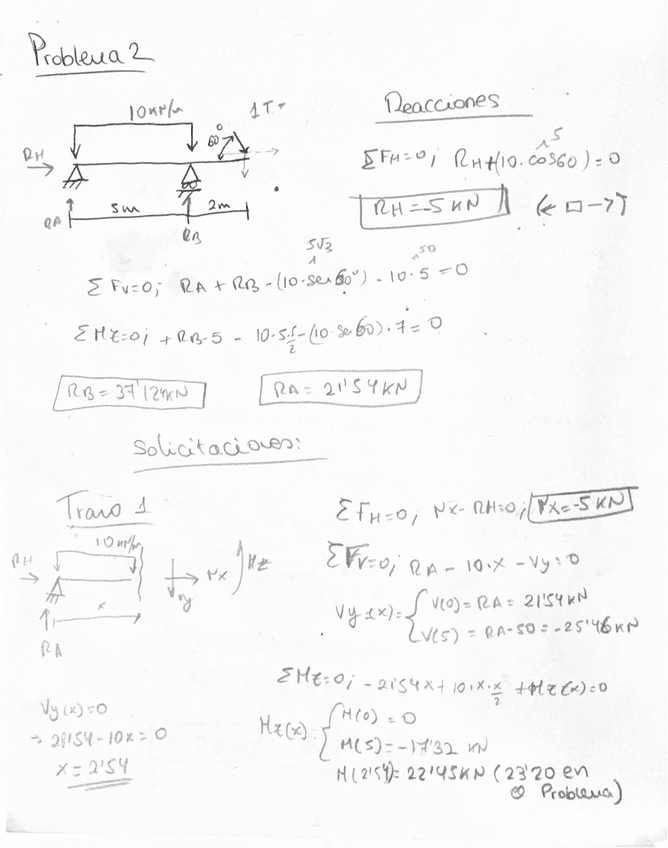 Problema 2
10 kN/m
1 T =
60°
RH
5m
2m
RA
RB
Reacciones
ΣFH=0; RH+(10·cos60)=0
5
RH=-5 KN (← □ →)
5√3
50
ΣFv=0; RA + RB - (10·sen60°) - 10·5 = 0
ΣMz=0; + RB·5 - 10·5·5/2 - (10·sen60)·7 = 0
RB = 37'12KN
RA = 21'54 KN
Solicitaciones:
Tramo 1
10 kN/m
RH
x
RA
Vy
Nx
Mz
ΣFH=0; Nx - RH=0; Nx=-5 KN
ΣFv=0; RA - 10·x - Vy=0
Vy(x)= { V(0) = RA = 21'54 KN
V(5) = RA-50 = -25'46 KN
ΣMz=0; - 21'54x + 10·x·x/2 + Mz(x)=0
Mz(x): { M(0) = 0
M(5) = -17'32 KN
M(2'54)= 22'45KN (23'20 en
Problema)
Vy(x)=0
→ 21'54-10x=0
x = 2'54